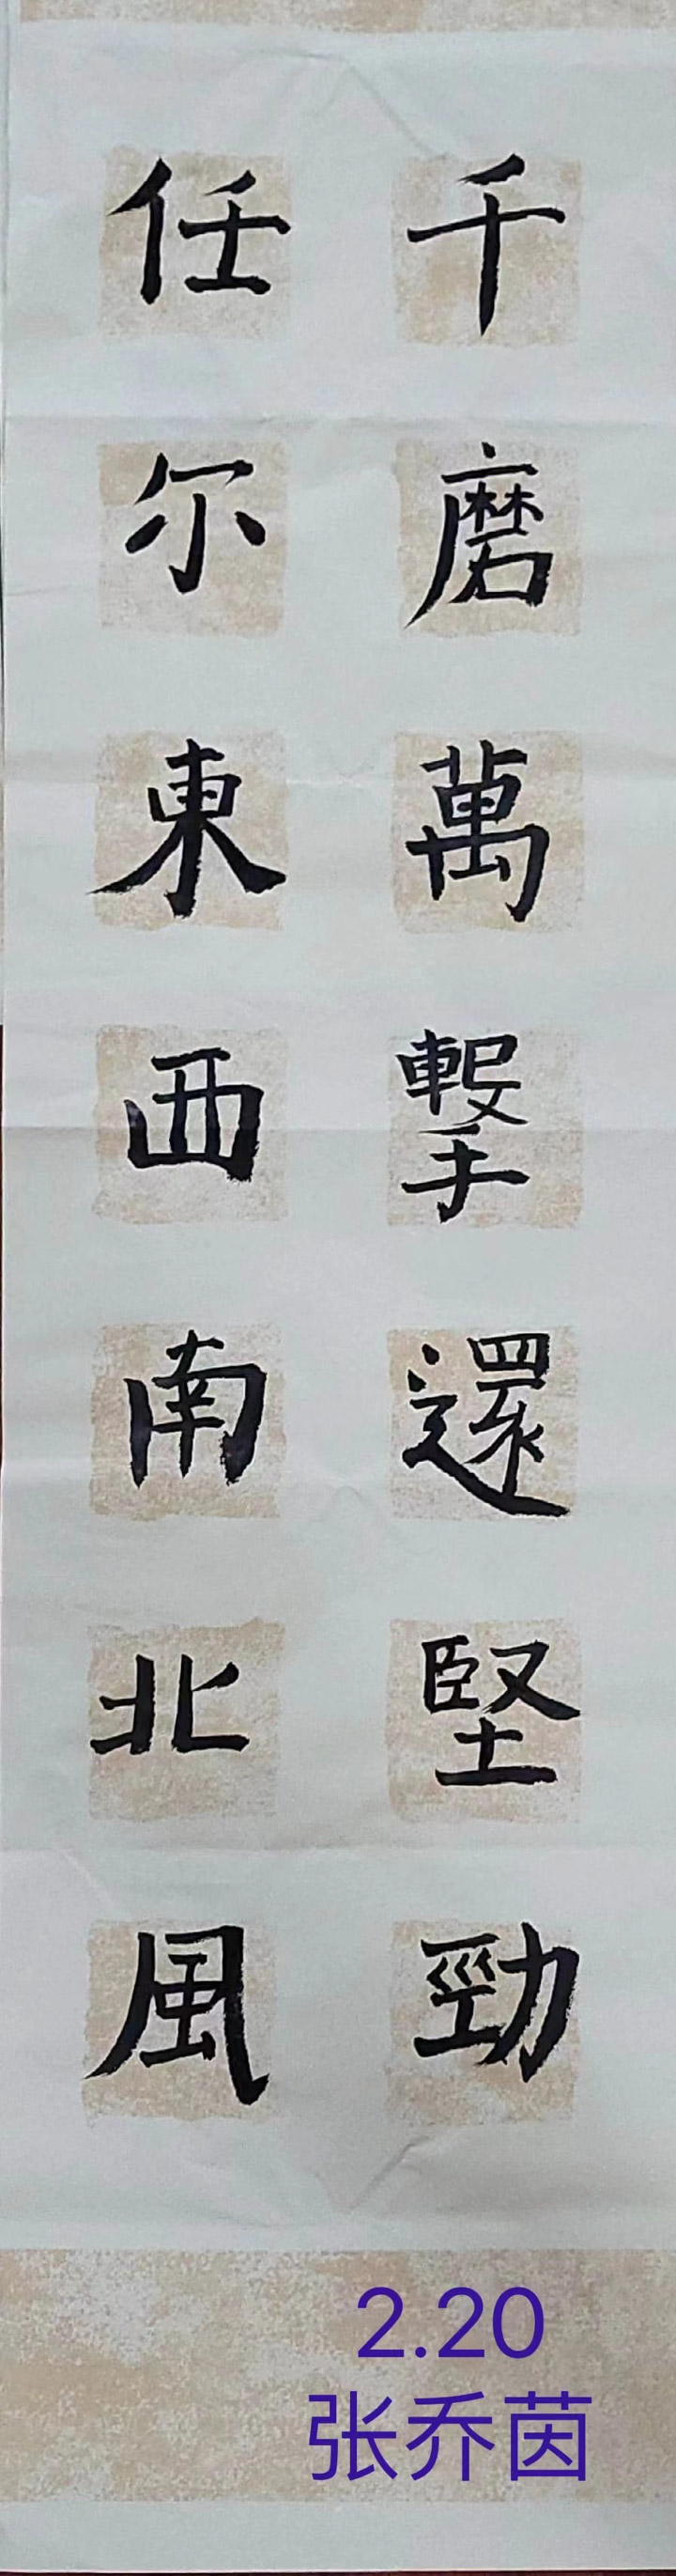 千磨萬擊還堅勁
任尔東西南北風
2.20
张乔茵